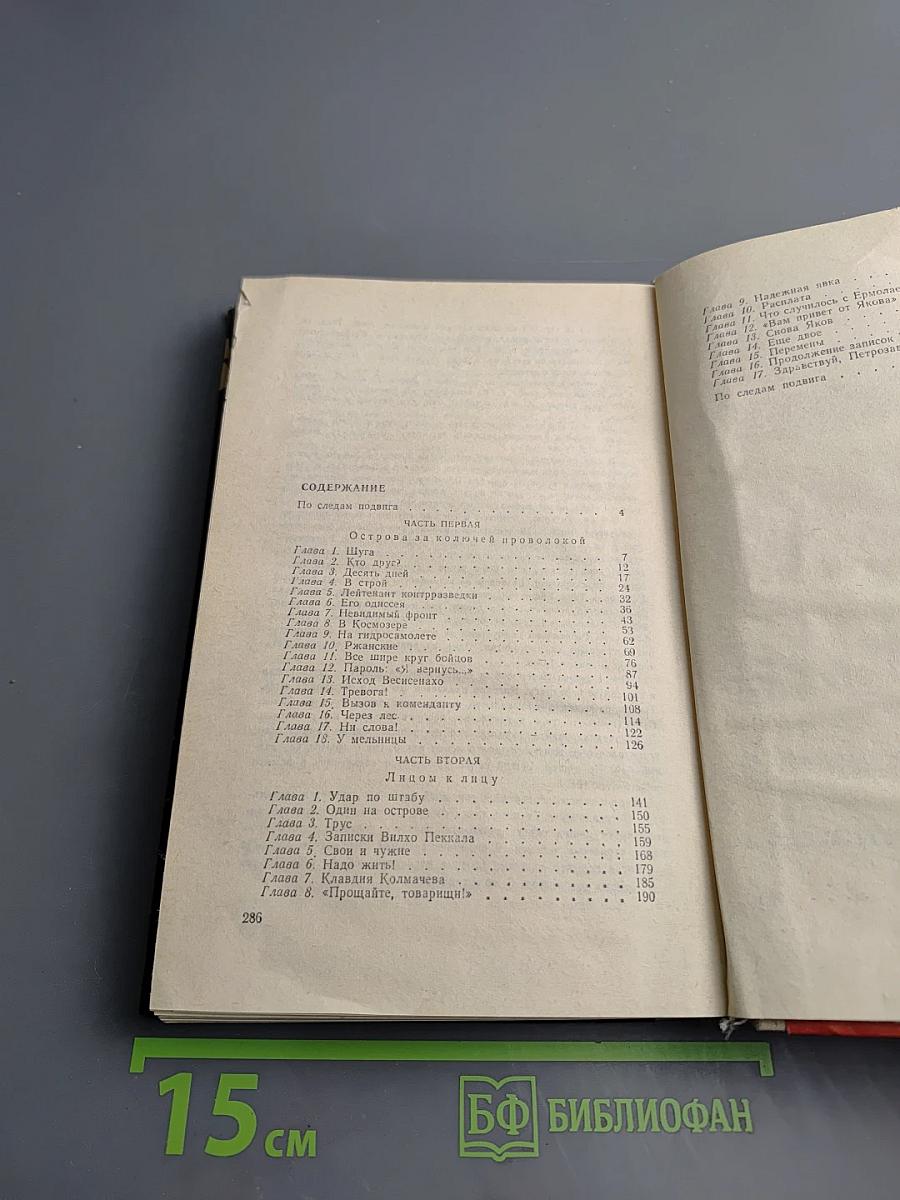 СОДЕРЖАНИЕ
По следам подвига . . . . . . . . . . . . 4
ЧАСТЬ ПЕРВАЯ
Острова за колючей проволокой
Глава 1. Шуга . . . . . . . . . . . . 7
Глава 2. Кто друг? . . . . . . . . . . . . 12
Глава 3. Десять дней . . . . . . . . . . . . 17
Глава 4. В строй . . . . . . . . . . . . 24
Глава 5. Лейтенант контрразведки . . . . . . . . 32
Глава 6. Его одиссея . . . . . . . . . . . . 36
Глава 7. Невидимый фронт . . . . . . . . . . 43
Глава 8. В Космозере . . . . . . . . . . . . 53
Глава 9. На гидросамолете . . . . . . . . . . 62
Глава 10. Ржанские . . . . . . . . . . . . 69
Глава 11. Все шире круг бойцов . . . . . . . . 76
Глава 12. Пароль: «Я вернусь...» . . . . . . . . 87
Глава 13. Исход Весисенахо . . . . . . . . . . 94
Глава 14. Тревога! . . . . . . . . . . . . 101
Глава 15. Вызов к коменданту . . . . . . . . 108
Глава 16. Через лес . . . . . . . . . . . . 114
Глава 17. Ни слова! . . . . . . . . . . . . 122
Глава 18. У мельницы . . . . . . . . . . . . 126
ЧАСТЬ ВТОРАЯ
Лицом к лицу
Глава 1. Удар по штабу . . . . . . . . . . 141
Глава 2. Один на острове . . . . . . . . . . 150
Глава 3. Трус . . . . . . . . . . . . 155
Глава 4. Записки Вилхо Пеккала . . . . . . . . 159
Глава 5. Свои и чужие . . . . . . . . . . 168
Глава 6. Надо жить! . . . . . . . . . . . . 179
Глава 7. Клавдия Колмачева . . . . . . . . . . 185
Глава 8. «Прощайте, товарищи!» . . . . . . . . 190
286
Глава 9. Надежная явка . . .
Глава 10. Расплата . . .
Глава 11. Что случилось с Ермолае
Глава 12. «Вам привет от Якова»
Глава 13. Снова Яков . . .
Глава 14. Еще двое . . .
Глава 15. Перемены . . .
Глава 16. Продолжение записок
Глава 17. Здравствуй, Петрозав
По следам подвига . . . .
15 см
БФ БИБЛИОФАН